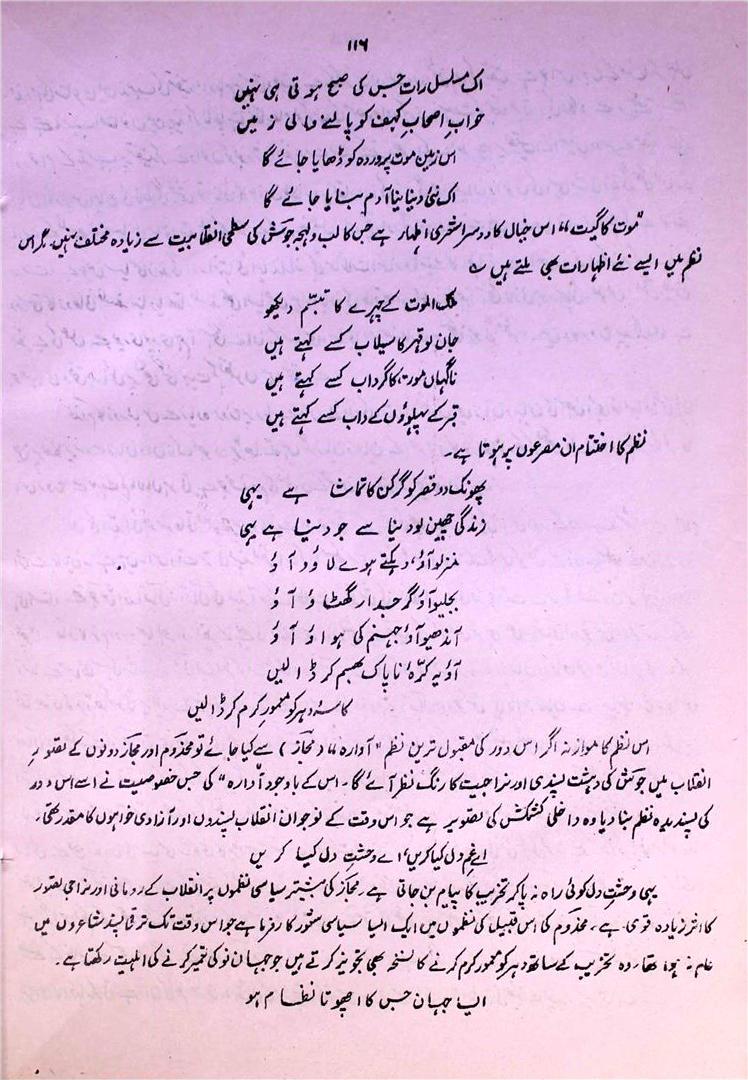 ۱۱۶
اک مسلسل رات جس کی صبح ہوتی ہی نہیں
خوابِ اصحابِ کہف کو پالنے والی زمیں
اس زمینِ موت پروردہ کو ڈھایا جائے گا
اک نئی دنیا نیا آدم بنایا جائے گا
"موت کا گیت" اس خیال کا دوسرا شعری اظہار ہے جس کا لب و لہجہ جوش کی سطحی انقلابیت سے زیادہ مختلف نہیں۔ مگر اس
نظم میں ایسے نئے اظہارات بھی ملتے ہیں ؎
ملک الموت کے چہرے کا تبسّم دیکھو
جان لو قہر کا سیلاب کسے کہتے ہیں
ناگہاں موت کا گرداب کسے کہتے ہیں
قبر کے پہلوؤں کے داب کسے کہتے ہیں
نظم کا اختتام ان مصرعوں پر ہوتا ہے۔
پھونک دو قصر کو گر کن کا تماشا ہے یہی
زندگی چھین لو دنیا سے جو دنیا ہے یہی
زلزلو آؤ، دہکتے ہوے لاوؤ آؤ
بجلیو آؤ گرجدار گھٹاؤ آؤ
آندھیو آؤ جہنم کی ہواؤ آؤ
آؤ یہ کرّۂ ناپاک بھسم کر ڈالیں
کاسۂ دہر کو معمورِ کرم کر ڈالیں
اس نظم کا موازنہ اگر اس دور کی مقبول ترین نظم "آوارہ" (مجاز) سے کیا جائے تو مخدوم اور مجاز دونوں کے تصورِ
انقلاب میں جوش کی دہشت پسندی اور نراجیت کا رنگ نظر آئے گا۔ اس کے باوجود "آوارہ" کی جس خصوصیت نے اسے اس دور
کی پسندیدہ نظم بنا دیا وہ داخلی کشمکش کی تصویر ہے جو اس وقت کے نوجوان انقلاب پسندوں اور آزادی خواہوں کا مقدر تھی۔
اے غمِ دل کیا کریں، اے وحشتِ دل کیا کریں
یہی وحشتِ دل کوئی راہ نہ پا کر تخریب کا پیام بن جاتی ہے۔ مجاز کی بیشتر سیاسی نظموں پر انقلاب کے رومانی اور نراجی تصور
کا اثر زیادہ قوی ہے۔ مخدوم کی اس قبیل کی نظموں میں ایک ایسا سیاسی شعور کارفرما ہے جو اس وقت تک ترقی پسند شاعروں میں
عام نہ ہوا تھا۔ وہ تخریب کے ساتھ دہر کو معمورِ کرم کرنے کا نسخہ بھی تجویز کرتے ہیں جو جہانِ نو کی تعمیر کرنے کی اہلیت رکھتا ہے۔
ایسا جہان جس کا اچھوتا نظام ہو